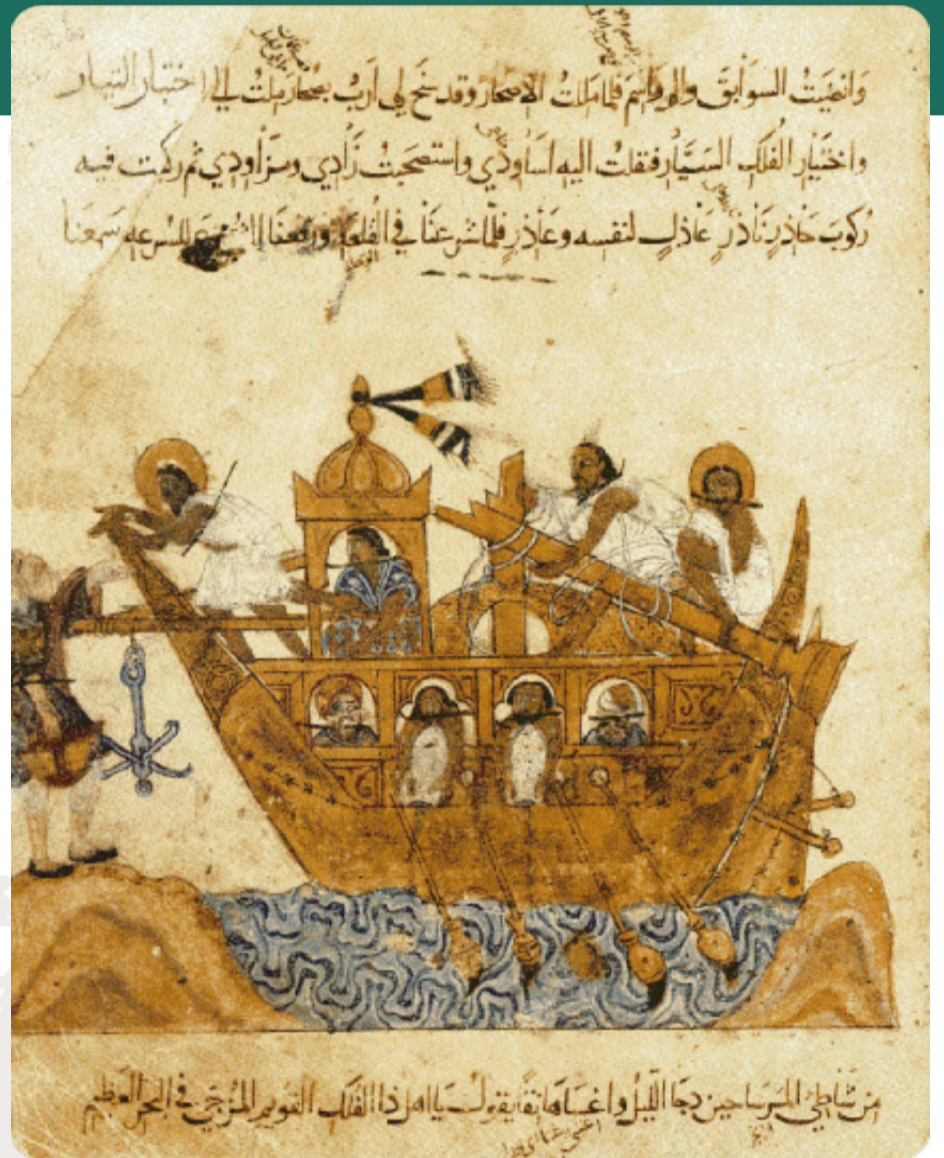 وانضيت السوابق والرواسم فلما مللت الاصحار وقد سنح لي ارب بصحار ملت الي اختيار التيار
واختيار الفلك السيار فنقلت اليه اساودي واستصحبت زادي ومزاودي ثم ركبت فيه
ركوب حاذر ناذر عاذل لنفسه وعاذر فلما شرعنا في القلعة ورفعنا للسرعه سمعنا
من شاطئ المرسا حين دجا الليل واغسا هاتفا يقول يا اهل ذا الفلك القويم المزجي في البحر العظيم